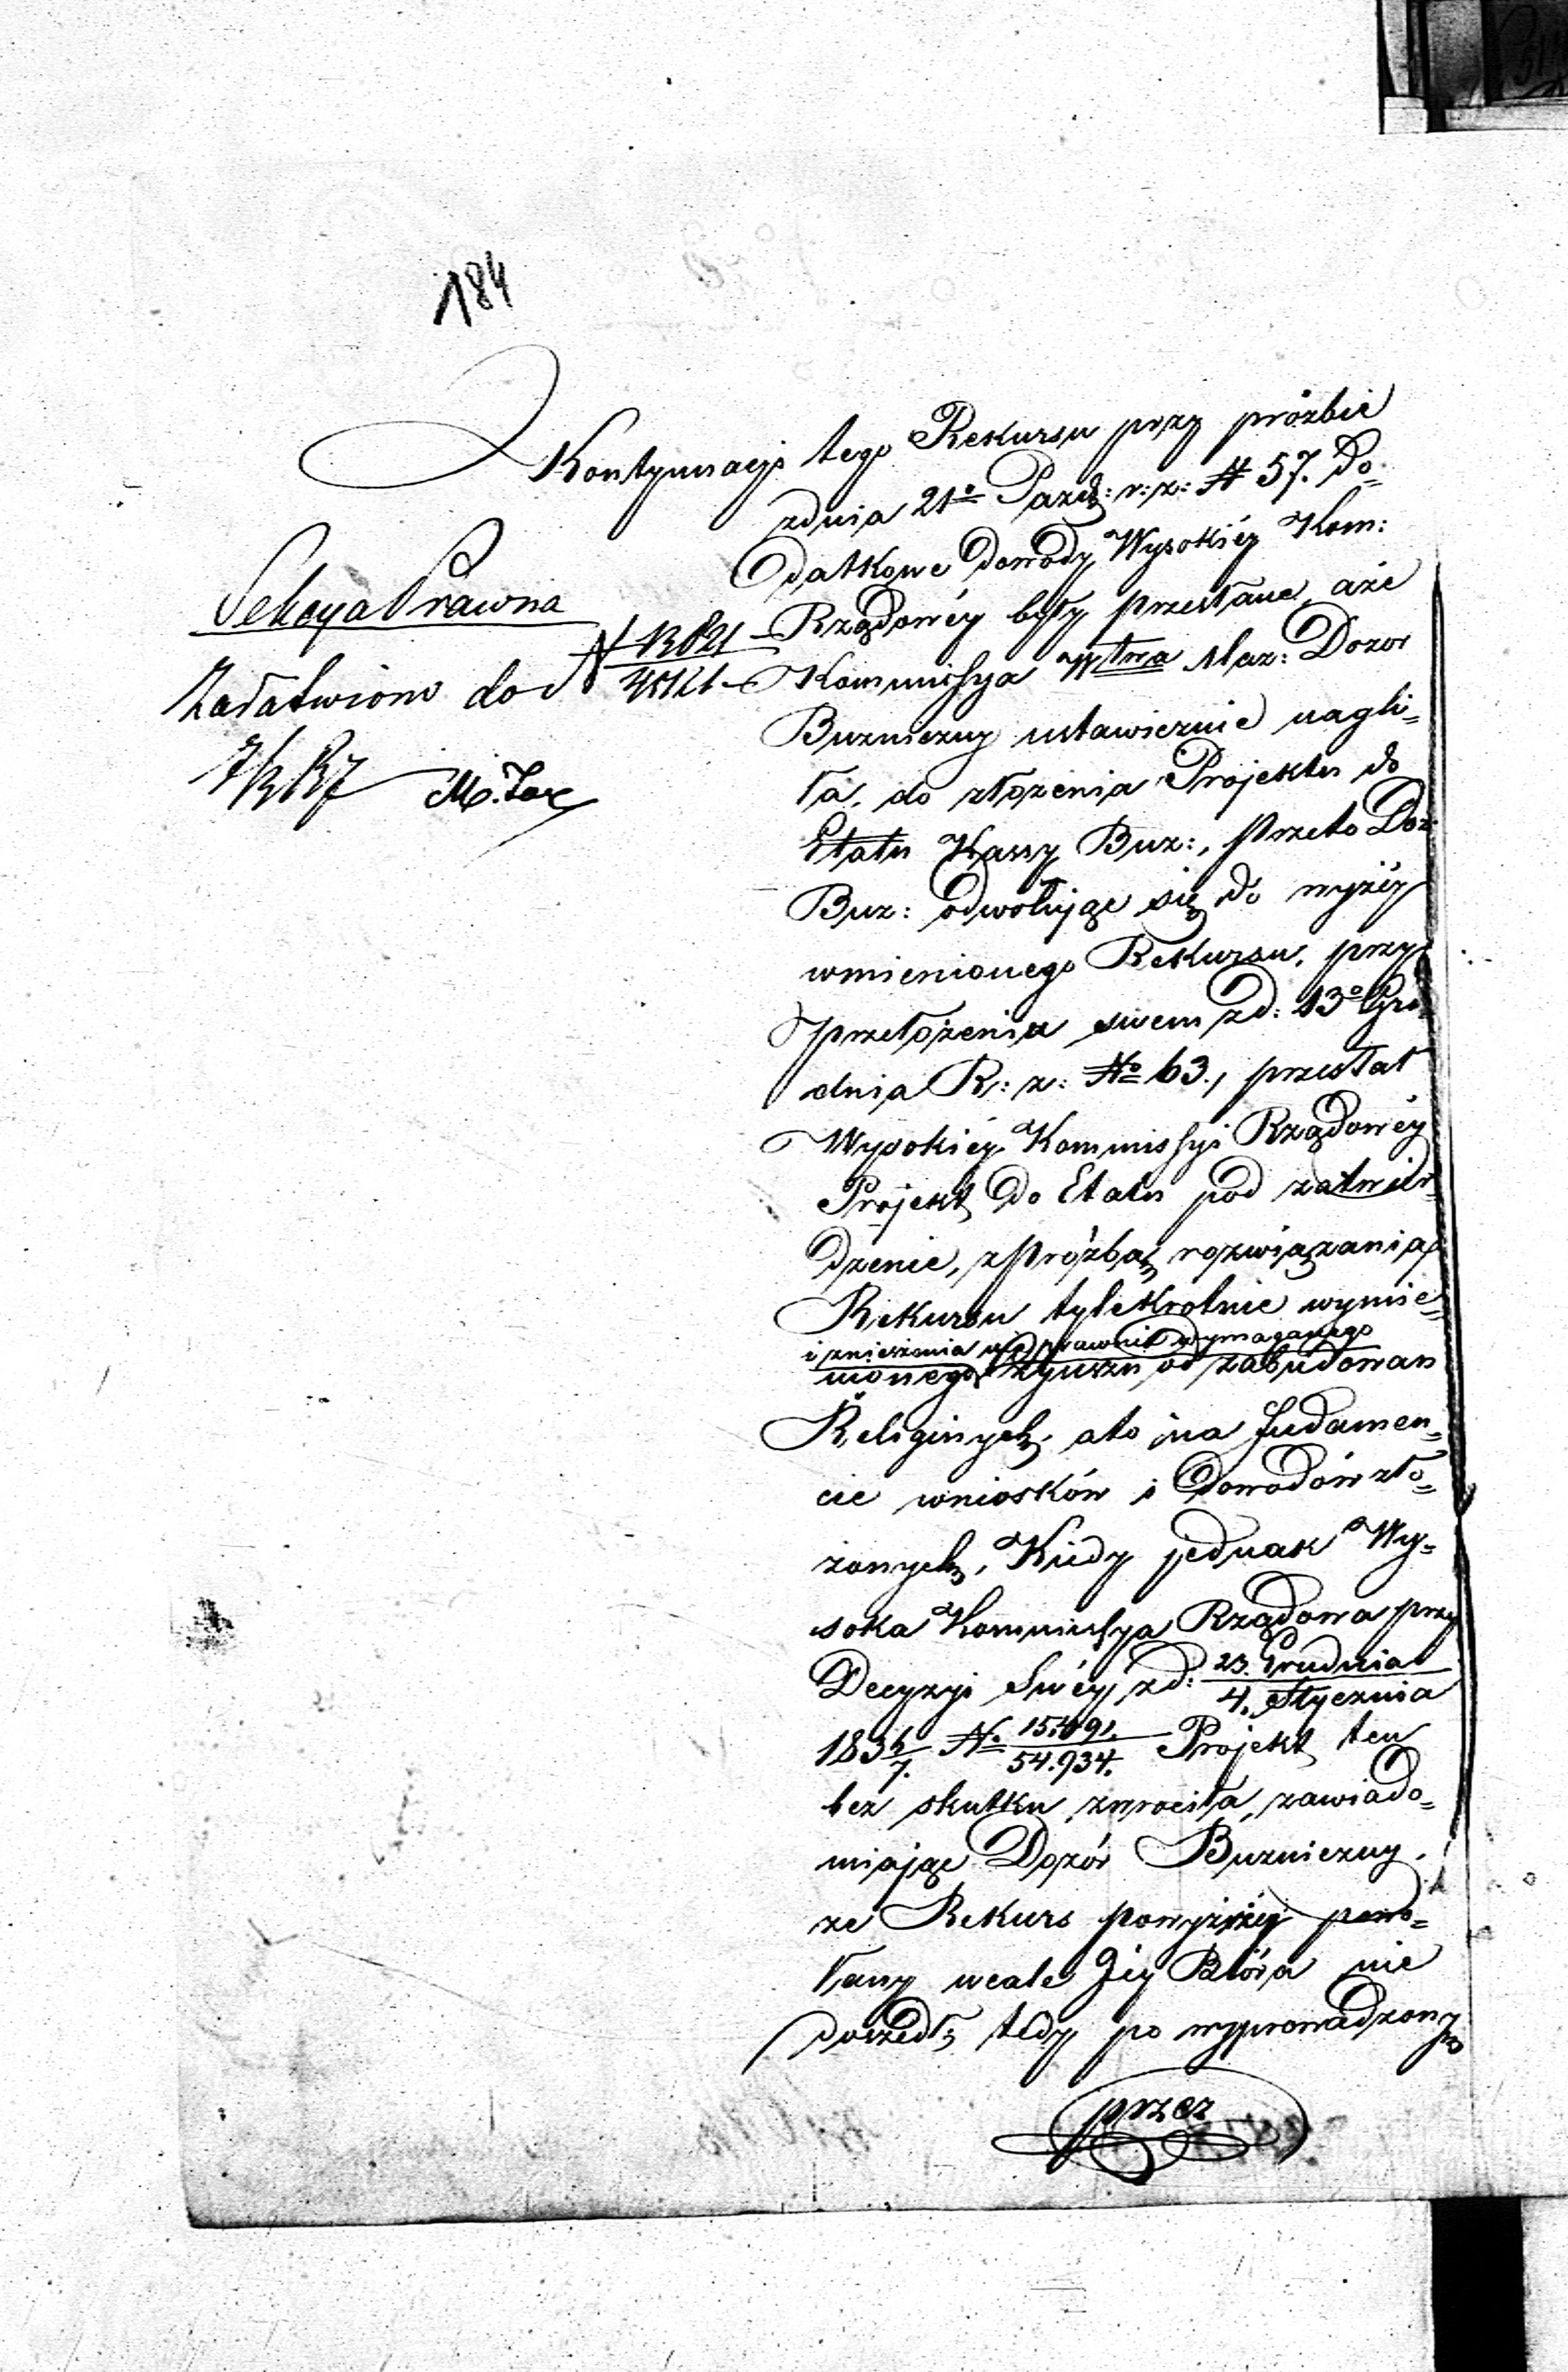 184
Kontynuacyo tego Rekursu przy prózbie
zdnia 21o Pazd: r: z: N 57. do-
datkowe dowody Wysokiéy Kom:
Rządowéy były przesłane, aże
Kommissya Wtwa Maz: Dozor
Buzniczny ustawicznie nagli=
ła, do złożenia Projektu do
Etatu Kassy Buz:, przeto Doz:
Buz: odwołując się do wyżéy
wmienionego Rekursu, przy
przełożeniu swem zd: 13o Gru
dnia R: z: No 63., przesłał
Wysokiéy Kommissyi Rządowéy
Projekt do Etatu pod zatwier=
dzenie, z prózbą rozwiązania
Rekursu tylekrotnie wymie=
i zniesienia prawnie wymaganego
nionego Czynszu od zabudowan
Religinych, ato na fudamen=
cie wniosków i dowodów zło=
żonych, Kiedy jednak Wy=
soka Kommissya Rządowa przy
Decyzyi Swéy zd: 23. Grudnia
4. Stycznia
1836/7. No 54.934. Projekt ten
bez skutku zwrociła, zawiado=
miając Dozór Buzniczny,
ze Rekurs powyżéy powo=
łany wcale Jéy Bióra nie
doszedł, tedy po wyprowadzony
przez
Sekcya Prawna
Załatwiono do N